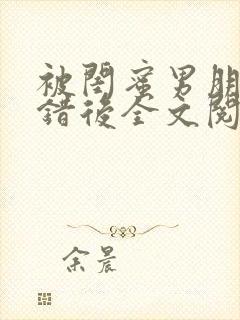 被閨蜜男朋
錯後全文閱
余晨